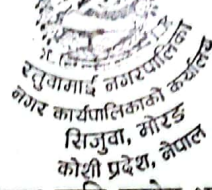 रतुवामाई नगरपालिका
नगर कार्यपालिकाको कार्यालय
सिजुवा, मोरङ
कोशी प्रदेश, नेपाल